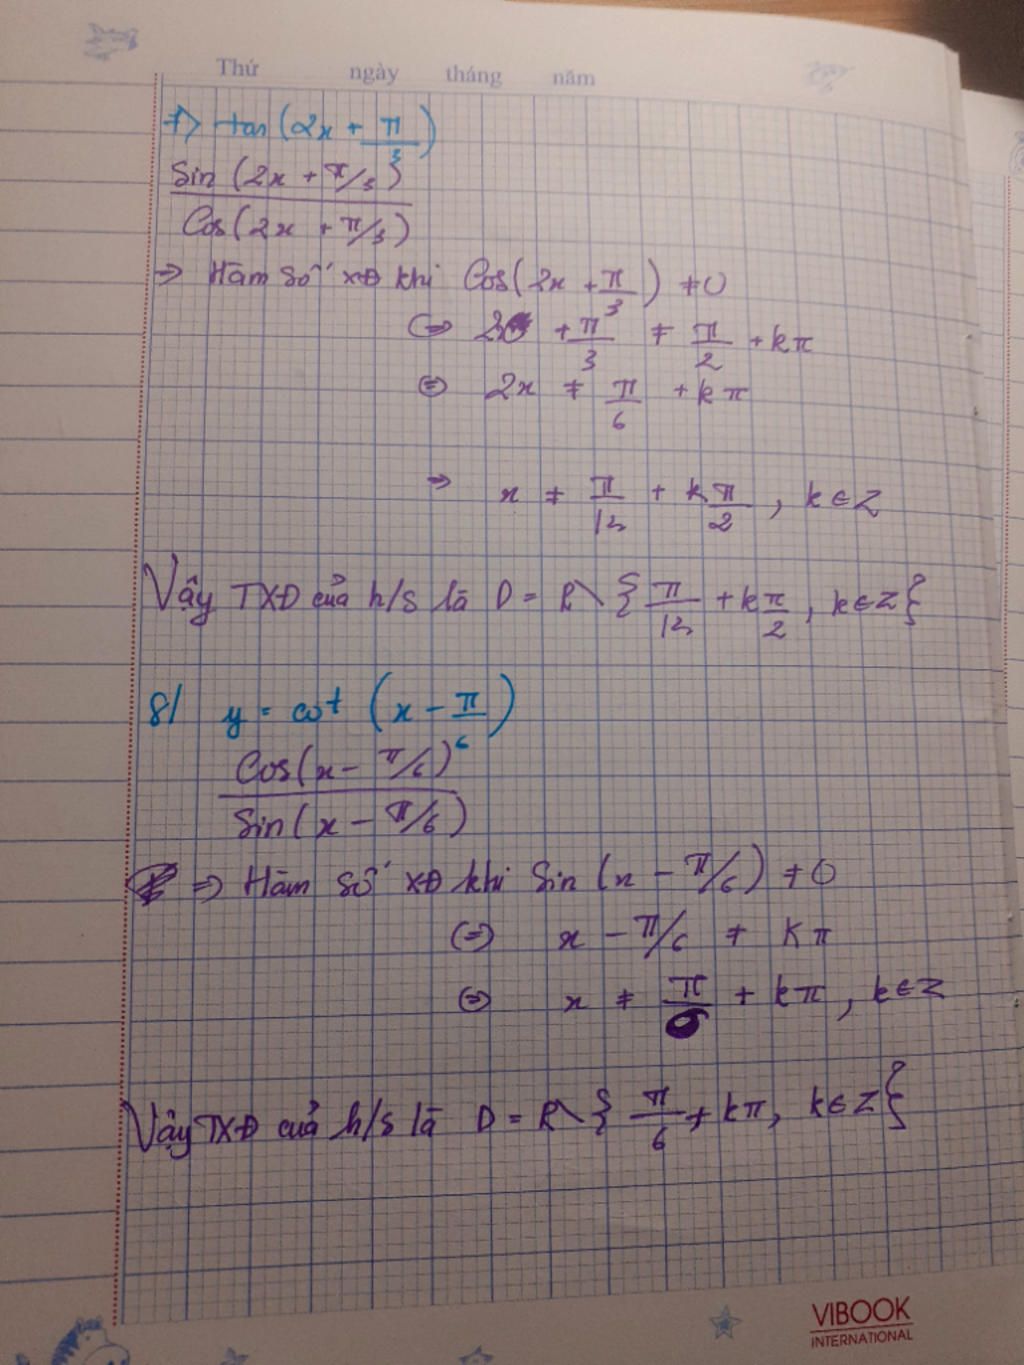 Thứ ngày tháng năm
7> tan(2x + π/3)
Sin(2x + π/3)
Cos(2x + π/3)
=> Hàm số XĐ khi Cos(2x + π/3) ≠ 0
<=> 2x + π/3 ≠ π/2 + kπ
<=> 2x ≠ π/6 + kπ
=> x ≠ π/12 + kπ/2, k∈Z
Vậy TXĐ của h/s là D = R\{π/12 + kπ/2, k∈Z}
8/ y = cot(x - π/6)
Cos(x - π/6)
Sin(x - π/6)
=> Hàm số XĐ khi Sin(x - π/6) ≠ 0
<=> x - π/6 ≠ Kπ
<=> x ≠ π/6 + kπ, k∈Z
Vậy TXĐ của h/s là D = R\{π/6 + kπ, k∈Z}
VIBOOK
INTERNATIONAL